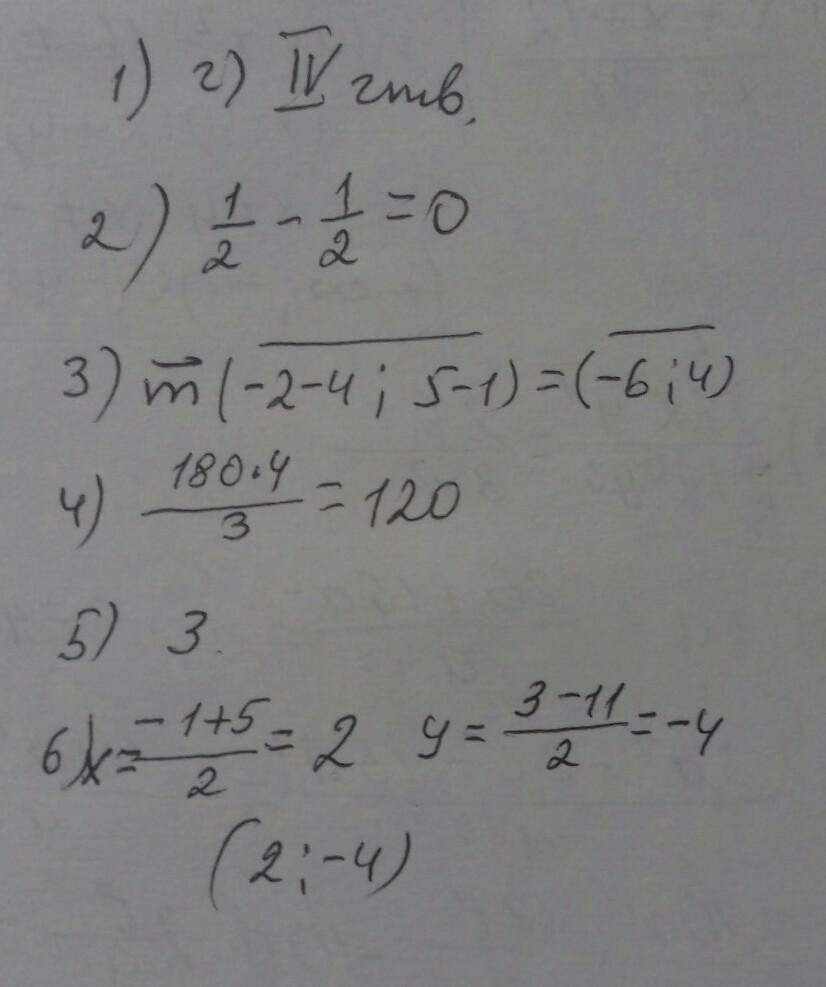 1) г) IV чтв.
2) 1/2 - 1/2 = 0
3) m⃗ (-2-4; 5-1) = (-6; 4)
4) 180·4/3 = 120
5) 3.
6) x = -1+5/2 = 2 y = 3-11/2 = -4
(2; -4)